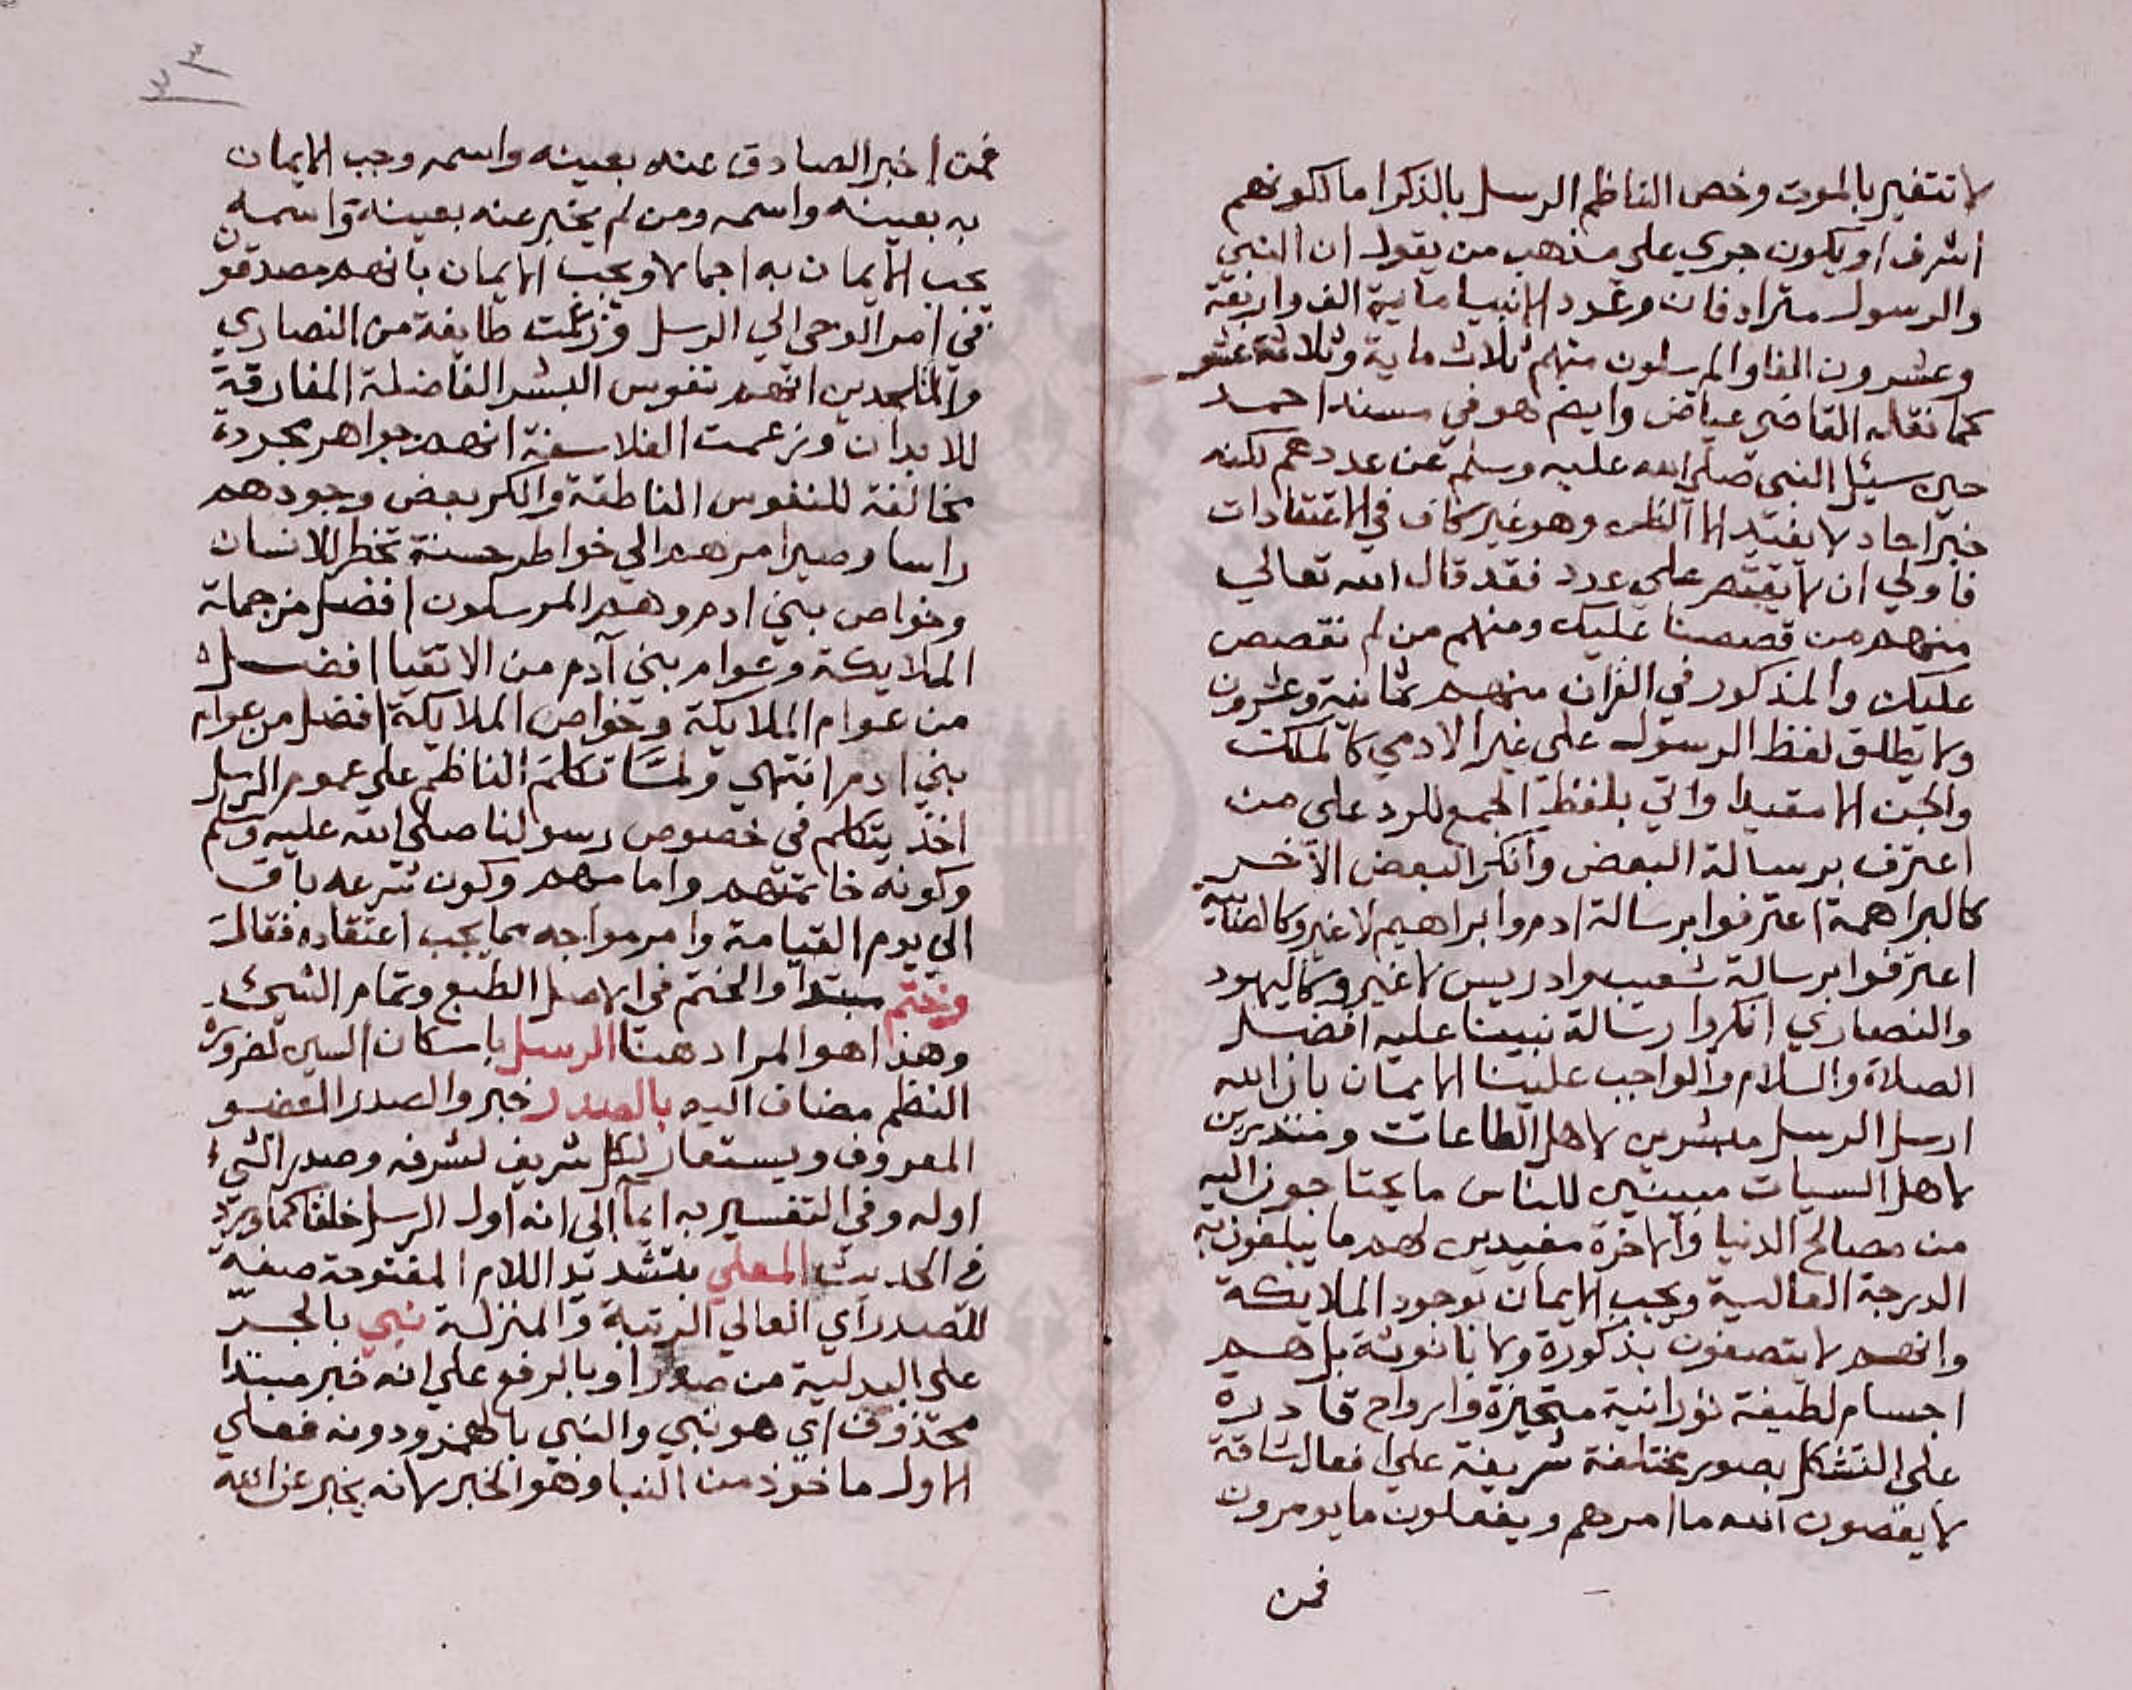 لا تتغير بالموت وخص الناظم الرسل بالذكر اما لكونهم
اشرف او يكون جري على مذهب من يقول ان النبي
والرسول مترادفان وعدد الانبيا ماية الف واربعة
وعشرون الفا والمرسلون منهم ثلاث ماية وثلاثة عشر
كما نقله القاضي عياض وايضا هو في مسند احمد
حين سيئل النبي صلى الله عليه وسلم عن عددهم لكنه
خبر احاد لا يفيد الا الظن وهو غير كاف في الاعتقادات
فاولي ان لا يقتصر علي عدد فقد قال الله تعالي
منهم من قصصنا عليك ومنهم من لم نقصص
عليك والمذكور في القرآن منهم ثمانية وعشرون
ولا يطلق لفظ الرسول على غير الادمي كالملك
والجن الا مقيدا واتي بلفظ الجمع للرد على من
اعترف برسالة البعض وانكر البعض الآخر
كالبراهمة اعترفوا برسالة ادم وابراهيم لا غير وكالصابية
اعترفوا برسالة شعيب وادريس لا غير وكاليهود
والنصاري انكروا رسالة نبينا عليه افضل
الصلاة والسلام والواجب علينا الايمان بان الله
ارسل الرسل مبشرين لاهل الطاعات ومنذرين
لاهل السيات مبينين للناس ما يحتاجون اليه
من مصالح الدنيا والاخرة مفيدين لهم ما يبلغون به
الدرجة العالية ويجب الايمان بوجود الملايكة
وانهم لا يتصفون بذكورة ولا بانوثة بل هم
اجسام لطيفة نورانية متحيزة وارواح قادرة
على التشكل بصور مختلفة شريفة علي افعال شاقة
لا يعصون الله ما امرهم ويفعلون ما يومرون
فمن
٣
٣
فمن اخبر الصادق عنه بعينه واسمه وجب الايمان
به بعينه واسمه ومن لم يخبر عنه بعينه واسمه
يجب الايمان به اجمالا ويجب الايمان بانهم مصدقون
في امر الوحي الي الرسل وزعمت طايفة من النصاري
والملحدين انهم نفوس البشر الفاضلة المفارقة
للابدان وزعمت الفلاسفة انهم جواهر مجردة
مخالفة للنفوس الناطقة وانكر بعض وجودهم
راسا وصير امرهم الي خواطر حسنة تخطر للانسان
وخواص بني ادم وهم المرسلون افضل من جملة
الملايكة وعوام بني آدم من الاتقيا افضل
من عوام الملايكة وخواص الملايكة افضل من عوام
بني ادم انتهي ولما تكلم الناظم علي عموم الرسل
اخذ يتكلم في خصوص رسولنا صلى الله عليه وسلم
وكونه خاتمتهم وامامهم وكون شرعه باق
الي يوم القيامة وامر مواجه بما يجب اعتقاده فقال
وختم مبتدا والختم في الاصل الطبع وتمام الشيئ
وهذا هو المراد هنا الرسل باسكان السين لضرورة
النظم مضاف اليه بالصدر خبر والصدر العضو
المعروف ويستعار لكل شريف لشرفه وصدر الشيء
اوله وفي التفسير به ايما الى انه اول الرسل خلقا كما ورد
في الحديث المعلي بتشديد اللام المفتوحة صفة
للصدر اي العالي الرتبة والمنزلة نبي بالجر
على البدلية من صدر او بالرفع علي انه خبر مبتدا
محذوف اي هو نبي والنبي بالهمز ودونه فعلي
الاول ماخوذ من النبا وهو الخبر لانه يخبر عن الله